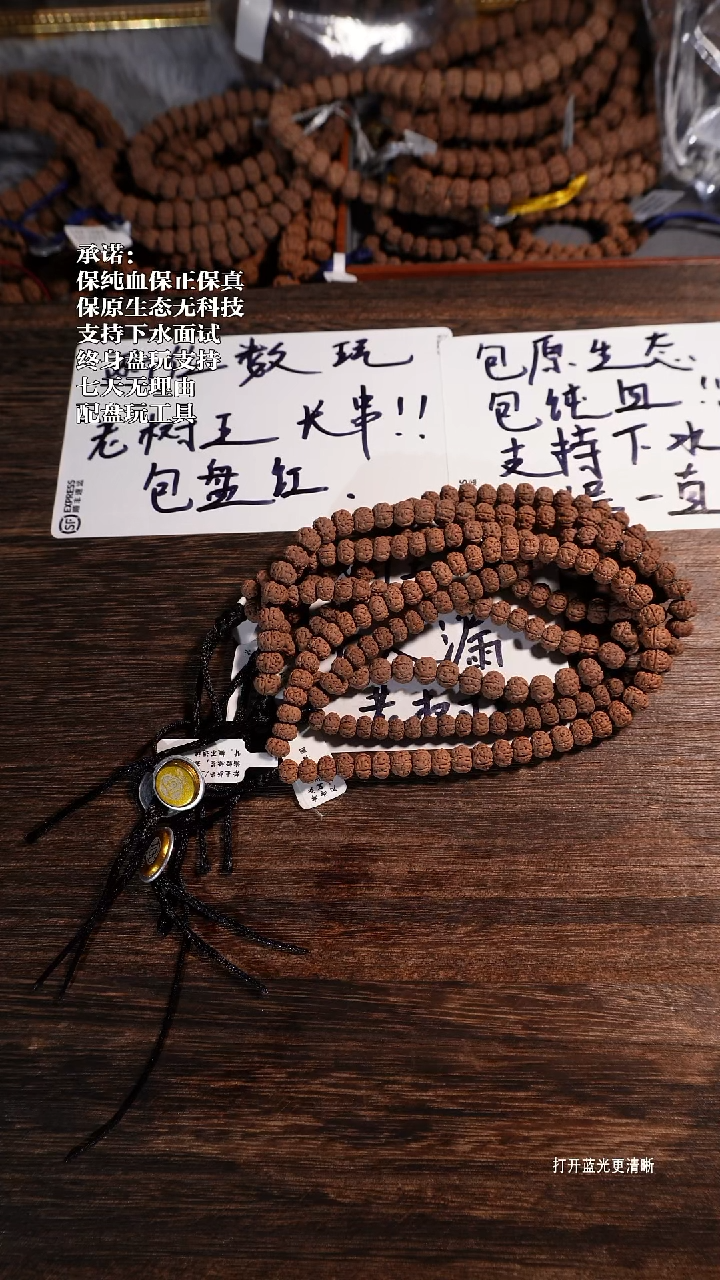 承诺:
保纯血保正保真
保原生态无科技
支持下水面试
终身盘玩支持
七天无理由
配盘玩工具
数玩
老树王 大串!!
包盘红.
SF EXPRESS
包原生态
包纯血!!
支持下水
一直
漏
打开蓝光更清晰